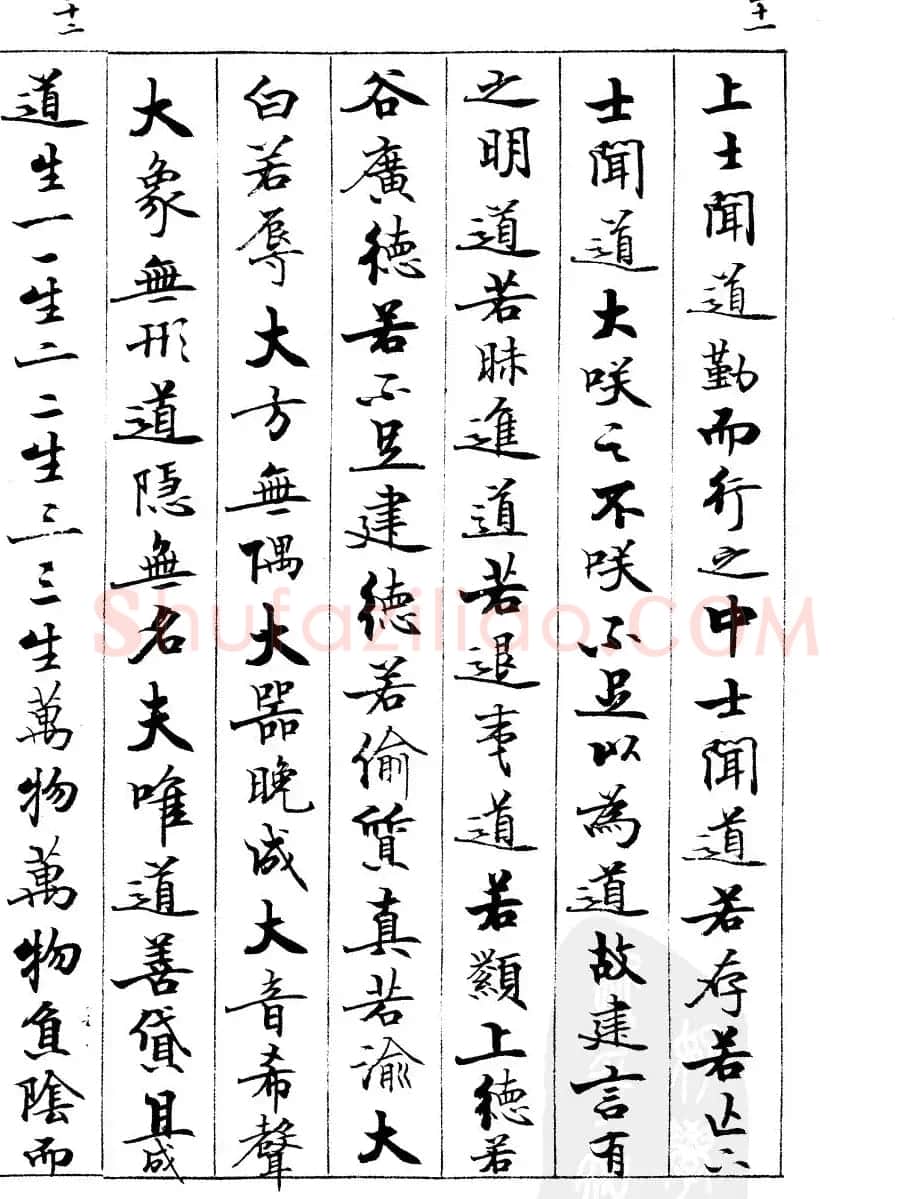 十一
上士聞道勤而行之中士聞道若存若亡下
士聞道大咲之不咲不足以為道故建言有
之明道若昧進道若退夷道若纇上德若
谷廣德若不足建德若偷質真若渝大
白若辱大方無隅大器晚成大音希聲
大象無形道隱無名夫唯道善貸且成
十二
道生一一生二二生三三生萬物萬物負陰而
Shufaziliao.COM